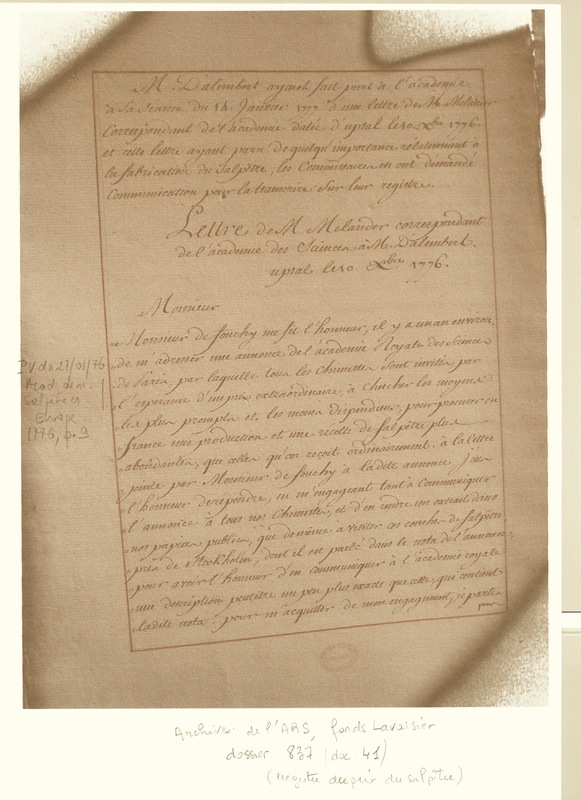 M. D'alembert ayant fait part a l'académie
a sa séance du 14 Janvier 1777 d'une lettre de M. Melander
Correspondant de l'academie datée d'upsal le 10 Xbre 1776.
et cette lettre ayant paru de quelqu'importance relativement à
la fabrication du Salpêtre, les Commissaires en ont demandé
Communication pour la transcrire sur leur registre.
Lettre de M Melander correspondant
de l'academie des Sciences à M. D'alembert.
upsal le 10 Xbre 1776.
Monsieur
Monsieur de fouchy me fit l'honneur, il y a un an environ,
de m'adresser une annonce de l'académie Royale des Sciences
de Paris par laquelle tous les Chimistes sont invités par
l'espérance d'un prix extraordinaire, à chercher les moyens
les plus prompts et les moins dispendieux, pour procurer en
france une production et une récolte de Salpêtre plus
abondantes, que celles qu'on reçoit ordinairement. à la lettre
jointe par Monsieur de fouchy à la dite annonce, j'eus
l'honneur de repondre, en m'engageant tant à Communiquer
l'annonce à tous nos Chimistes, et d'en rendre un extrait dans
nos papiers publics, que de même a visiter ces couches de Salpêtre
près de Stockholm, dont il est parlé dans le nota de l'annonce
pour avoir l'honneur d'en communiquer à l'académie royale
une description peutêtre un peu plus exacte que celle, qui contient
ladite nota. pour m'acquitter de mon engagement, je partis
pour
PV du 27/01/76
Acad. dem.
Salpêtre
1776, p. 9
Archives de l'ARS, fonds Lavoisier
dossier 837 (doc. 41)
(registre du prix du salpêtre)